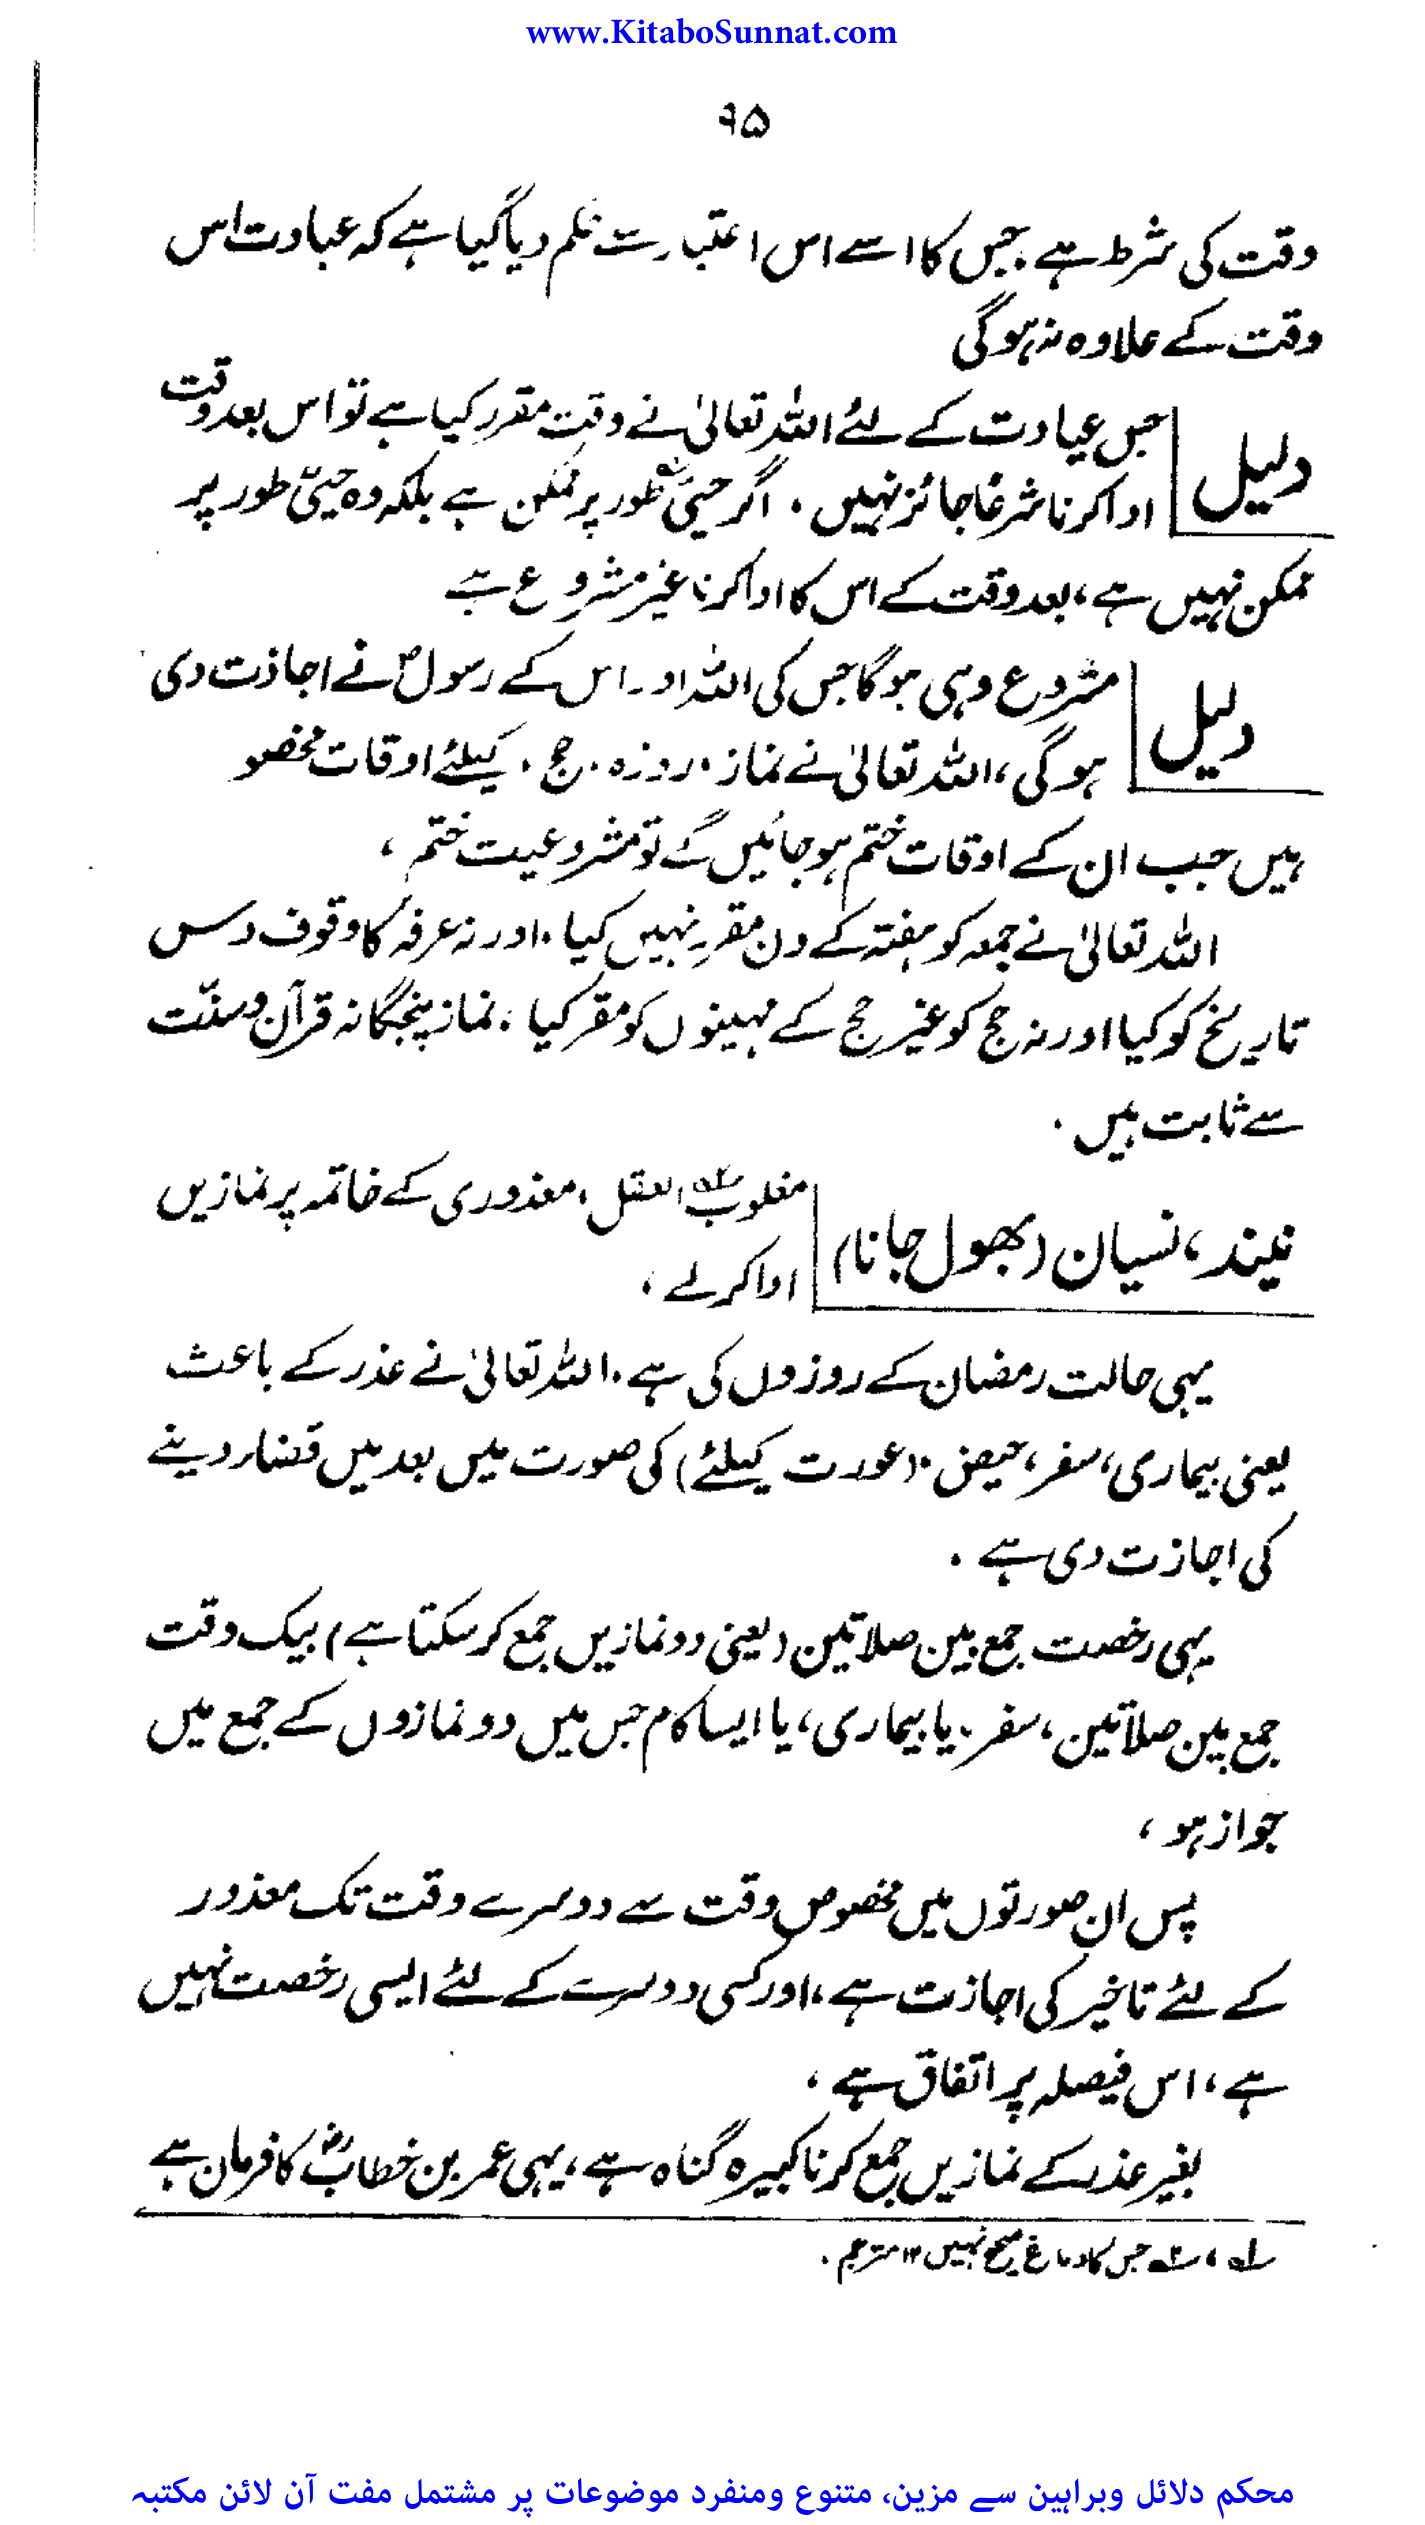 www.KitaboSunnat.com
۹۵
وقت کی شرط ہے، جس کا اسے اس اعتبار سے حکم دیا گیا ہے کہ عبادت اس
وقت کے علاوہ نہ ہوگی
دلیل
جس عبادت کے لئے اللہ تعالیٰ نے وقت مقرر کیا ہے تو اس بعد وقت
ادا کرنا شرعًا جائز نہیں۔ اگر حسیّ طور پر ممکن ہے بلکہ وہ حسیّ طور پر
ممکن نہیں ہے، بعد وقت کے اس کا ادا کرنا غیر مشروع ہے
دلیل
مشروع وہی ہوگا جس کی اللہ اور اس کے رسولؐ نے اجاذت دی
ہوگی، اللہ تعالیٰ نے نماز۔ روزہ۔ حج۔ کیلئے اوقات مخصو
ہیں جب ان کے اوقات ختم ہو جائیں گے تو مشروعیت ختم،
اللہ تعالیٰ نے جمعہ کو ہفتہ کے دن مقرر نہیں کیا۔ اور نہ عرفہ کا وقوف دس
تاریخ کو کیا اور نہ حج کو غیر حج کے مہینوں کو مقر کیا، نماز پنجگانہ قرآن وسنّت
سے ثابت ہیں۔
نیند، نسیان (بھول جانا)
مغلوب العقل، معذوری کے خاتمہ پر نمازیں
ادا کرلے،
یہی حالت رمضان کے روزوں کی ہے۔ اللہ تعالیٰ نے عذر کے باعث
یعنی بیماری، سفر، حیض۔ (عورت کیلئے) کی صورت میں بعد میں قضاء دینے
کی اجازت دی ہے۔
یہی رخصت جمع بین صلاتین (یعنی دو نمازیں جمع کر سکتا ہے) بیک وقت
جمع بین صلاتین، سفر۔ یا بیماری، یا ایسا کام جس میں دو نمازوں کے جمع میں
جواز ہو،
پس ان صورتوں میں مخصوص وقت سے دوسرے وقت تک معذور
کے لئے تاخیر کی اجازت ہے، اور کسی دوسرے کے لئے ایسی رخصت نہیں
ہے، اس فیصلہ پر اتفاق ہے،
بغیر عذر کے نمازیں جمع کرنا کبیرہ گناہ ہے، یہی عمر بن خطابؓ کا فرمان ہے
۱؎، ۲؎ جس کا دماغ صحیح نہیں ۱۲ مترجم۔
محکم دلائل وبراہین سے مزین، متنوع ومنفرد موضوعات پر مشتمل مفت آن لائن مکتبہ